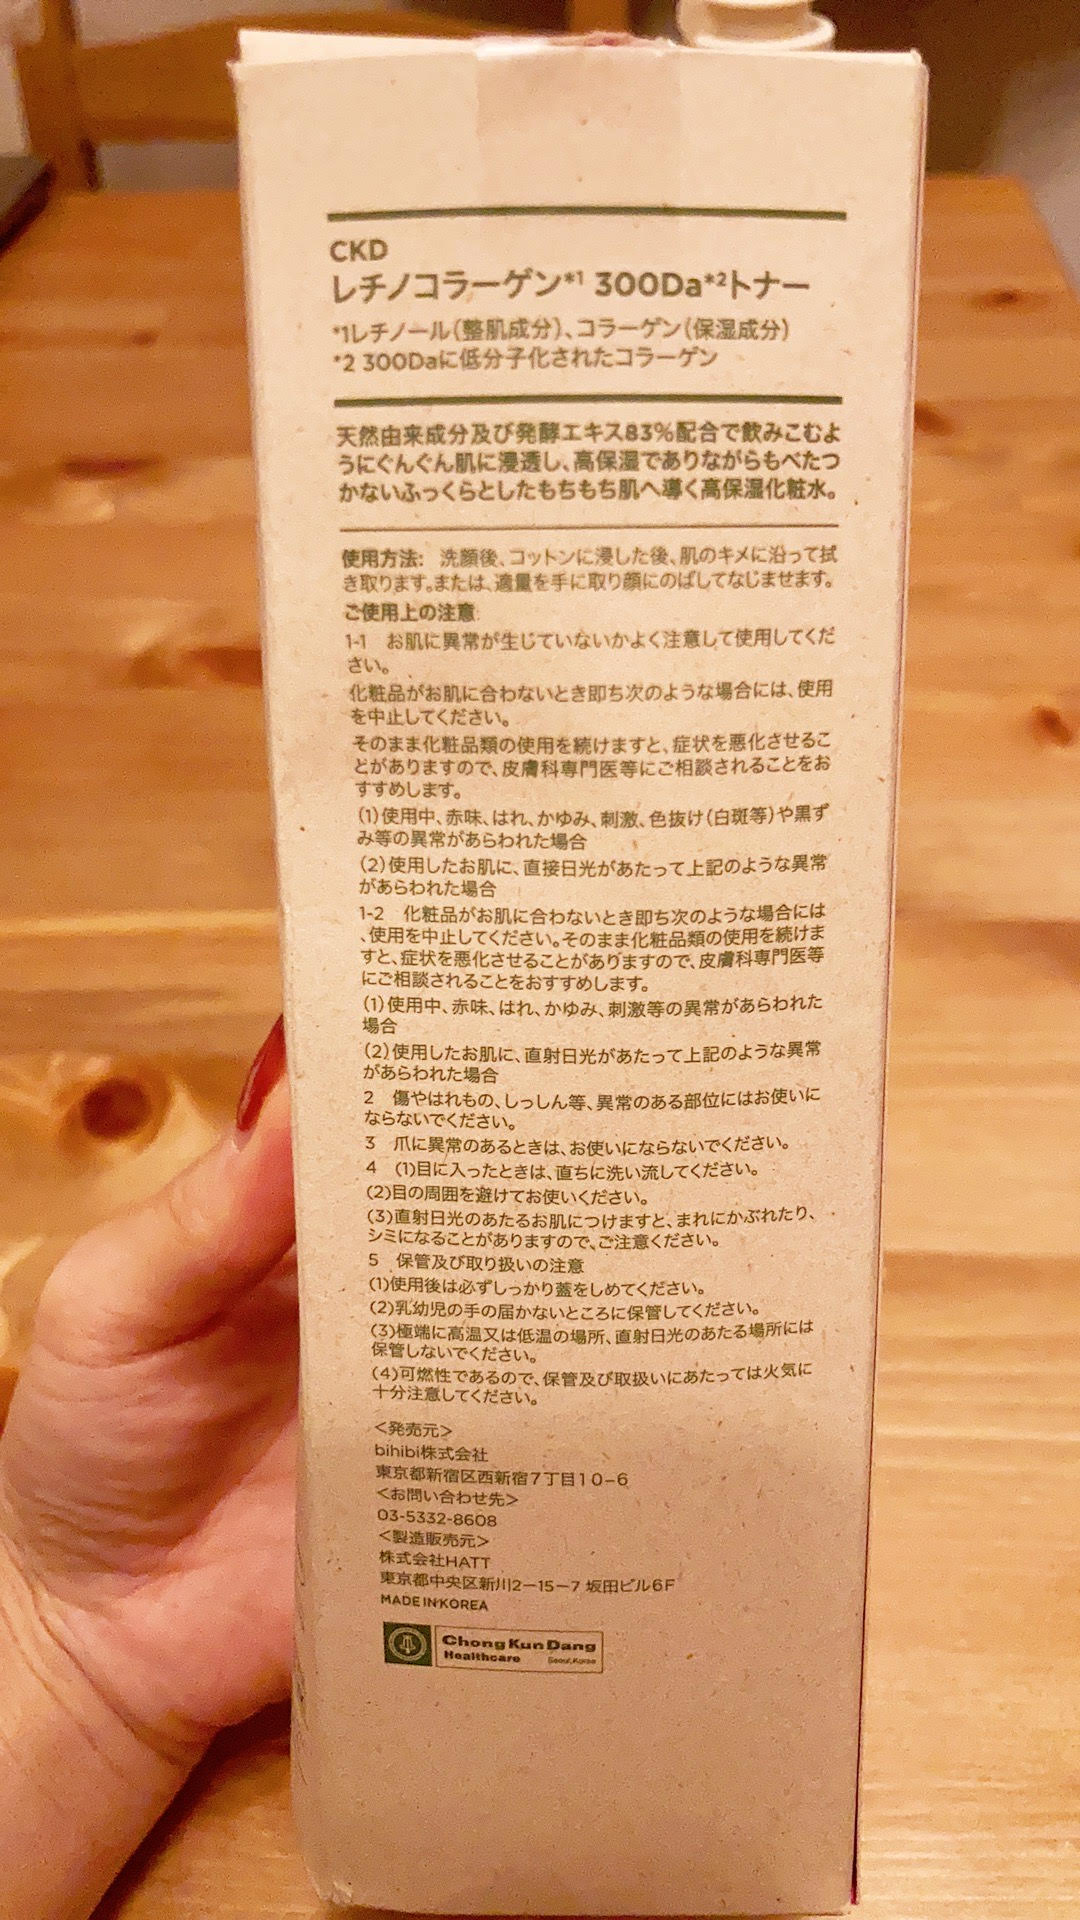 CKD
レチノコラーゲン*1 300Da*2トナー
*1レチノール(整肌成分)、コラーゲン(保湿成分)
*2 300Daに低分子化されたコラーゲン
天然由来成分及び発酵エキス83%配合で飲みこむよ
うにぐんぐん肌に浸透し、高保湿でありながらもべたつ
かないふっくらとしたもちもち肌へ導く高保湿化粧水。
使用方法: 洗顔後、コットンに浸した後、肌のキメに沿って拭
き取ります。または、適量を手に取り顔にのばしてなじませます。
ご使用上の注意:
1-1 お肌に異常が生じていないかよく注意して使用してくだ
さい。
化粧品がお肌に合わないとき即ち次のような場合には、使用
を中止してください。
そのまま化粧品類の使用を続けますと、症状を悪化させるこ
とがありますので、皮膚科専門医等にご相談されることをお
すすめします。
(1)使用中、赤味、はれ、かゆみ、刺激、色抜け(白斑等)や黒ず
み等の異常があらわれた場合
(2)使用したお肌に、直接日光があたって上記のような異常
があらわれた場合
1-2 化粧品がお肌に合わないとき即ち次のような場合には
、使用を中止してください。そのまま化粧品類の使用を続けま
すと、症状を悪化させることがありますので、皮膚科専門医等
にご相談されることをおすすめします。
(1)使用中、赤味、はれ、かゆみ、刺激等の異常があらわれた
場合
(2)使用したお肌に、直射日光があたって上記のような異常
があらわれた場合
2 傷やはれもの、しっしん等、異常のある部位にはお使いに
ならないでください。
3 爪に異常のあるときは、お使いにならないでください。
4 (1)目に入ったときは、直ちに洗い流してください。
(2)目の周囲を避けてお使いください。
(3)直射日光のあたるお肌につけますと、まれにかぶれたり、
シミになることがありますので、ご注意ください。
5 保管及び取り扱いの注意
(1)使用後は必ずしっかり蓋をしめてください。
(2)乳幼児の手の届かないところに保管してください。
(3)極端に高温又は低温の場所、直射日光のあたる場所には
保管しないでください。
(4)可燃性であるので、保管及び取扱いにあたっては火気に
十分注意してください。
<発売元>
bihibi株式会社
東京都新宿区西新宿7丁目10-6
<お問い合わせ先>
03-5332-8608
<製造販売元>
株式会社HATT
東京都中央区新川2-15-7 坂田ビル6F
MADE IN KOREA
Chong Kun Dang
Healthcare Seoul, Korea